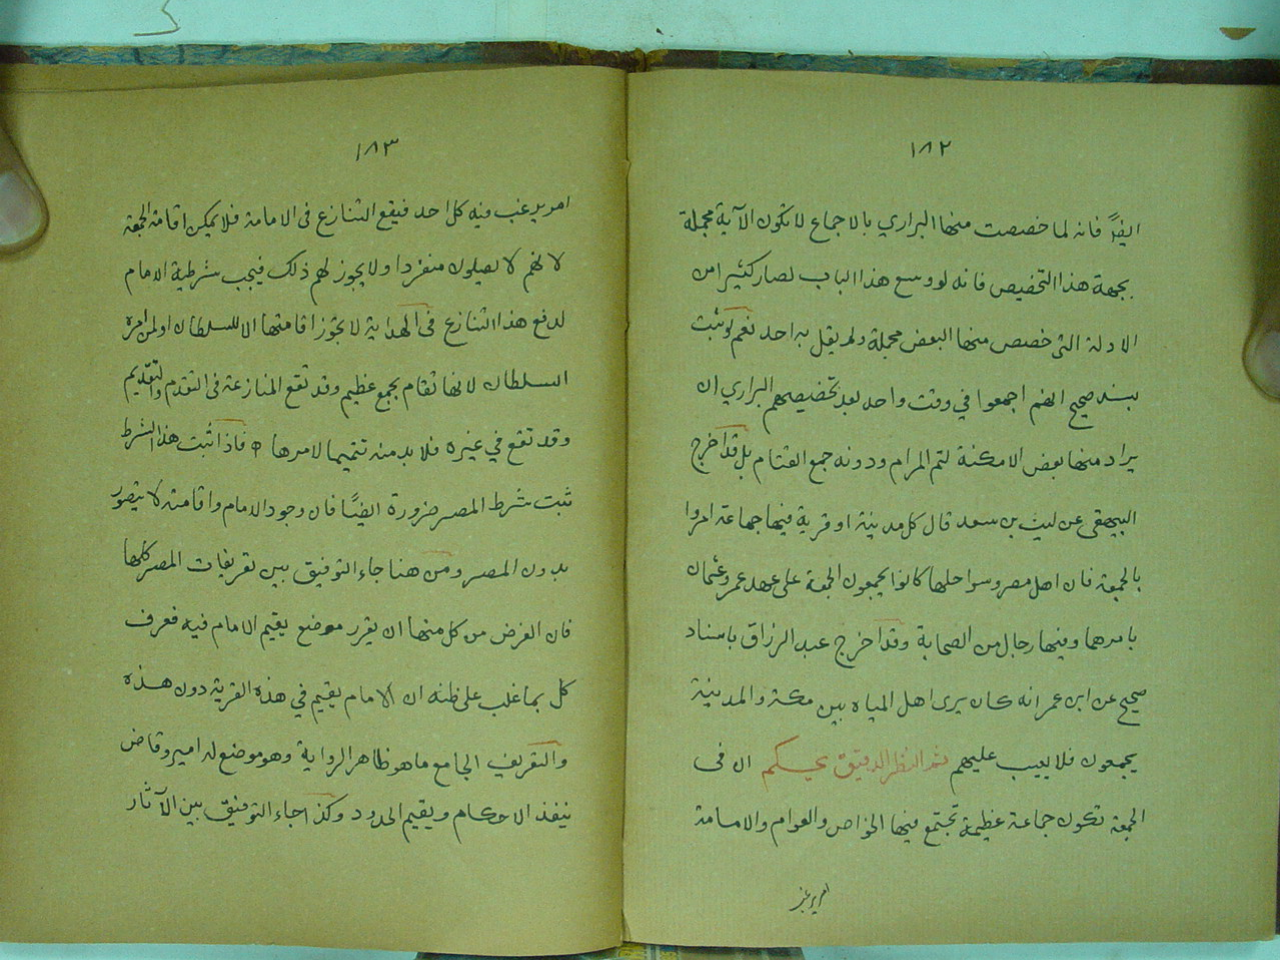 ١٨٢
ايضًا فانه لما خصصت منها البراري بالاجماع لا تكون الآية مجملة
بجهة هذا التخصيص فانه لو وسع هذا الباب لصار كثير امن
الادلة التى خصص منها البعض مجملة ولم يقل به احد نعم لو ثبت
بسند صحيح انهم اجمعوا في وقت واحد بعد تخصيصهم البراري ان
يراد منها بعض الامكنة لتم المرام ودونه جمع القتام بل قد اخرج
البيهقى عن ليث بن سعد قال كل مدينة او قرية فيها جماعة امروا
بالجمعة فان اهل مصر وسواحلها كانوا يجمعون الجمعة على عهد عمر وعثمان
بامرهما وفيها رجال من الصحابة وقد اخرج عبد الرزاق باسناد
صحيح عن ابن عمر انه كان يرى اهل المياه بين مكة والمدينة
يجمعون فلا يعيب عليهم ثم النظر الدقيق يحكم ان فى
الجمعة تكون جماعة عظيمة تجتمع فيها الخواص والعوام والامامة
امر يرغب
١٨٣
امر يرغب فيه كل احد فيقع التنازع فى الامامة فلا يمكن اقامة الجمعة
لانهم لا يصلون منفردا ولا يجوز لهم ذلك فيجب شرطية الامام
لدفع هذا التنازع فى الهداية لا يجوز اقامتها الا للسلطان او لمن امره
السلطان لانها تقام بجمع عظيم وقد تقع المنازعة فى التقدم والتقديم
وقد تقع في غيره فلا بد منه تتميما لامرها ه فاذا ثبت هذا الشرط
ثبت شرط المصر ضرورة ايضًا فان وجود الامام واقامته لا يتصور
بدون المصر ومن هنا جاء التوفيق بين تعريفات المصر كلها
فان الغرض من كل منها ان يقرر موضع يقيم الامام فيه فعرف
كل بما غلب على ظنه ان الامام يقيم في هذه القرية دون هذه
والتعريف الجامع ما هو ظاهر الرواية وهو موضع له امير وقاض
ينفذ الاحكام ويقيم الحدود وكذا جاء التوفيق بين الآثار